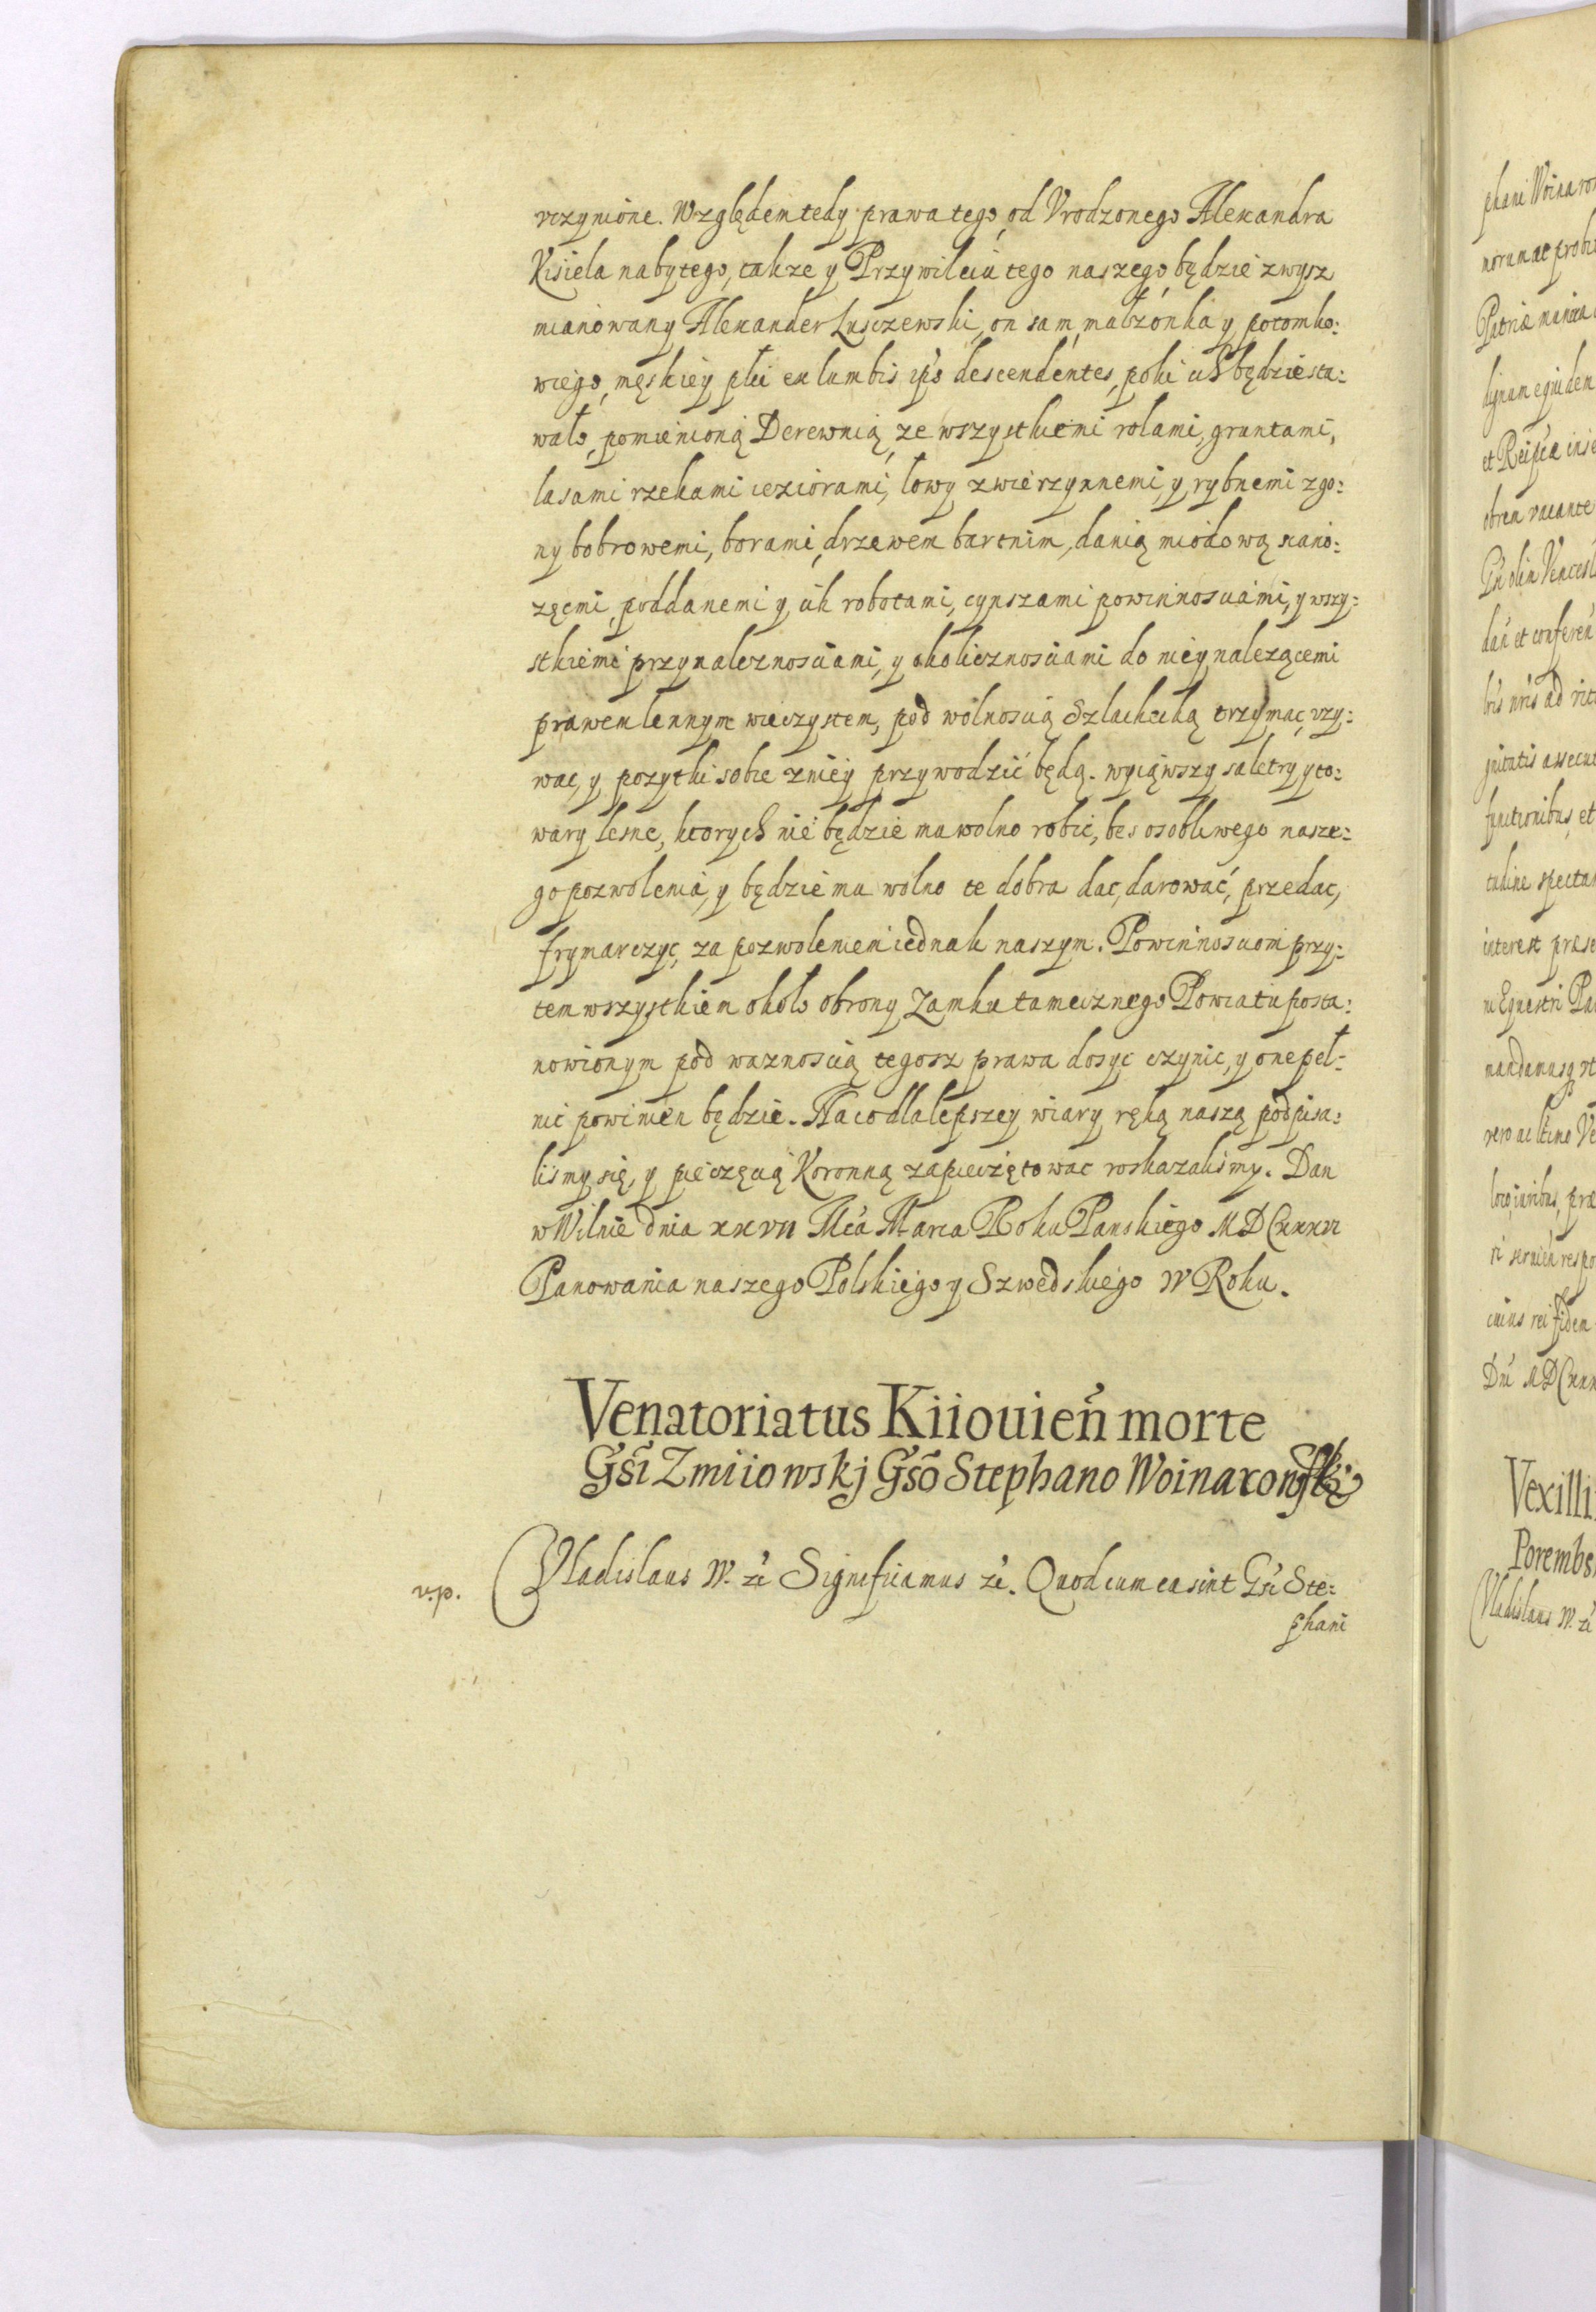 vczynione. Względem tedy prawa tego, od Vrodzonego Alexandra
Kisiela nabytego, takze y Przywileiu tego naszego, będzie zwysz
mianowany Alexander Lusczewski, on sam, małzonka y potomko:
wie go, męskiey płci ex lumbis ip's descendentes, poki ich będzie sta:
wało, pomienioną Derewnią, ze wszystkiemi rolami, gruntami,
lasami rzekami ieziorami, łowy zwierzynnemi, y rybnemi zgo:
ny bobrowemi, borami, drzewem bartnim, danią miodową siano:
zęcmi, poddanemi y ich robotami, cynszami powinnosciami, y wszy:
stkiemi przynaleznosciami, y okolicznosciami do niey nalezącemi
prawem lennym wieczystem, pod wolnoscią Szlachecką trzymac, vzy:
wac, y pozytki sobie z niey przywodzić będą. wyiąwszy saletry y to:
wary lesne, ktorych nie będzie mu wolno robic, bes osobliwego nasze:
go pozwolenia, y będzie mu wolno te dobra dac, darować, przedac,
frymarczyc, za pozwoleniem iednak naszym. Powinnosciom przy:
tem wszystkiem około obrony Zamku tamecznego Powiatu posta:
nowionym pod waznoscią tegosz prawa dosyc czynic, y one peł:
nic powinien będzie. Na co dla lepszey wiary ręką naszą podpisa:
lismy się, y pieczęcią Koronną zapieczętowac roskazalismy. Dan
w Wilnie dnia xxvii Mca Marca Roku Panskiego MDCxxxvi
Panowania naszego Polskiego y Szwedskiego IV Roku.
Venatoriatus Kiiouien̄ morte
Gsi Zmiiowskj Gso Stephano Woinarowski
v.p. Vladislaus IV. ze Significamus ze. Quod cum ea sint Gsi Ste:
phani
phani Woinaro
morum ac probi
Patriæ
dignum
et Reipcæ
obrem vacante
Gn olim Vencesl
dan et conferen
bis nris ad vit
assecut
functionibus, et
tudine spectan
interest præse
ni Equestri Pa
mandamusq vt
vero ac ltimo Ve
loco, iuribus, præ
cuius rei fidem
Dni MDCxxx
Vexilli
Porembs
Vladislaus IV. ze